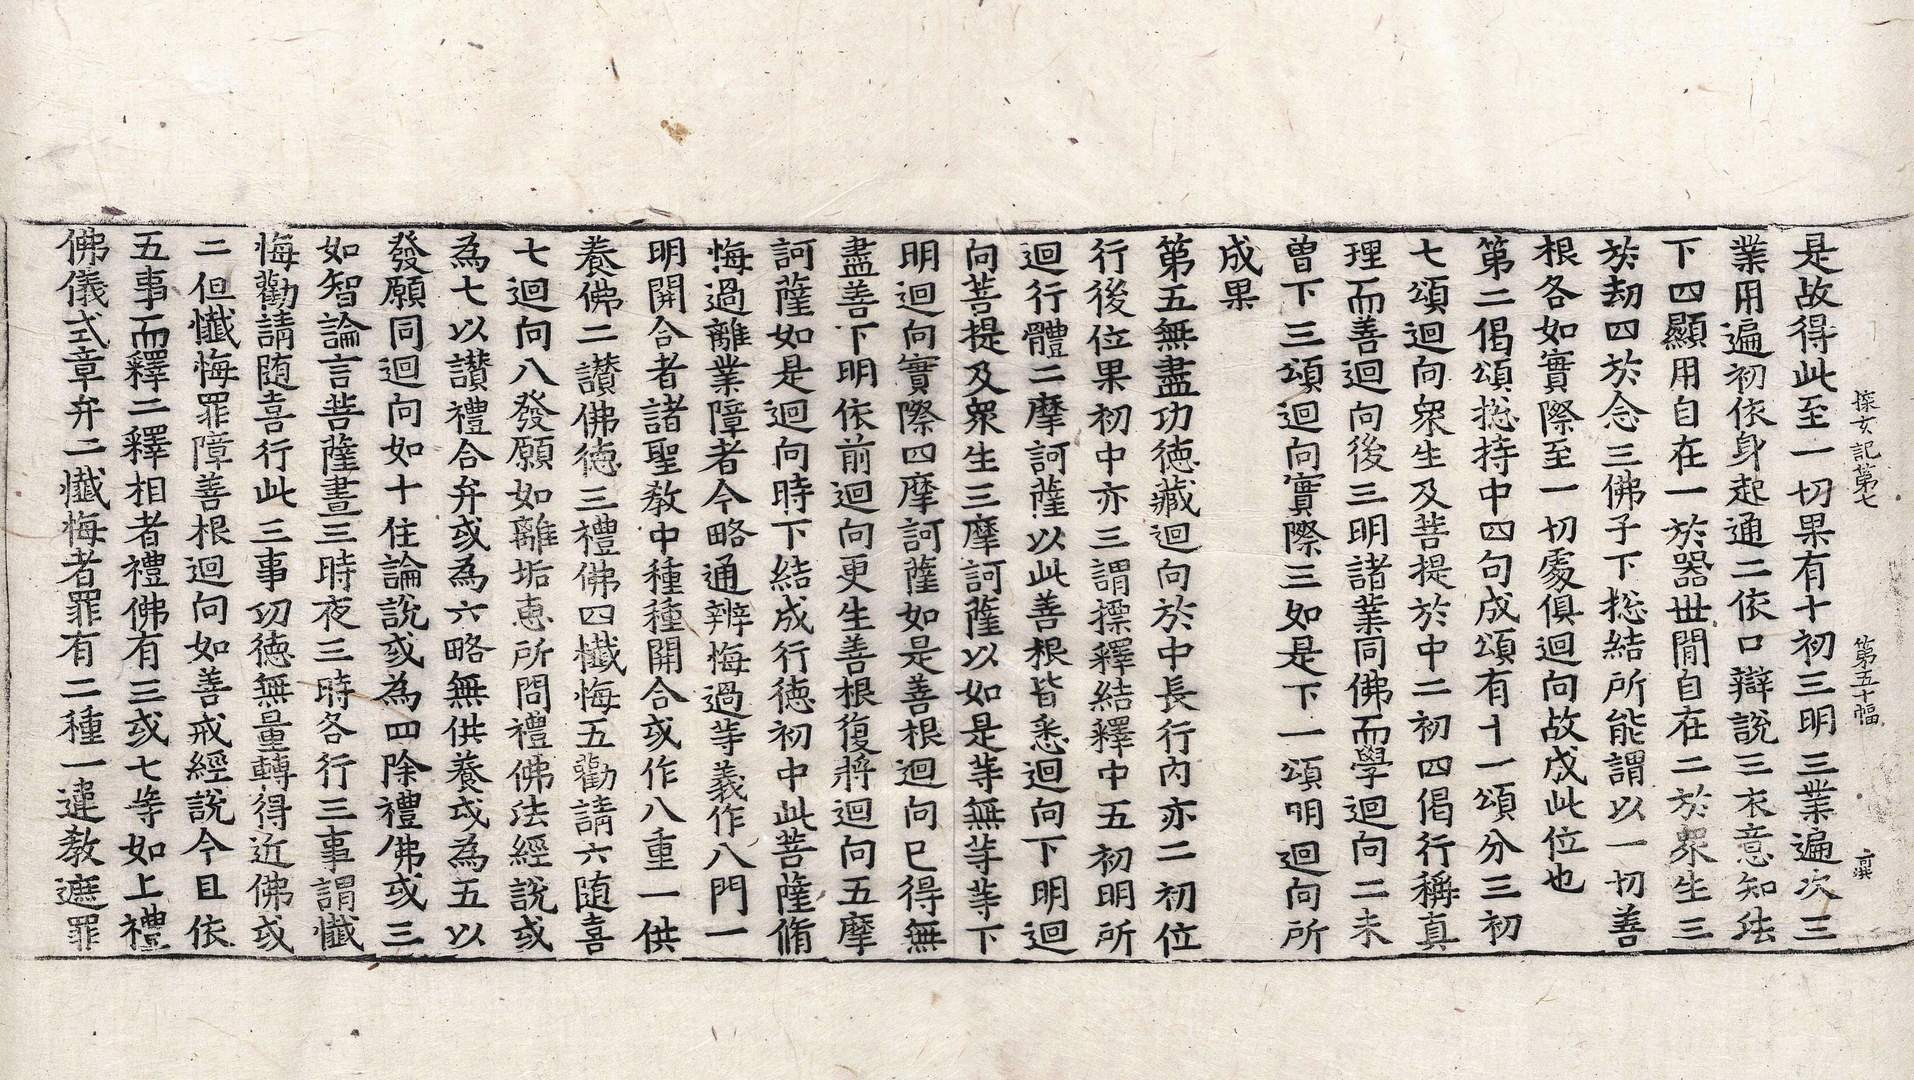 探玄記第七 第五十幅
是故得此至一切果有十初三明三業遍次三
業用遍初依身起通二依口辯説三衣意知法
下四顯用自在一於器世間自在二於衆生三
於劫四於念三佛子下捴結所能謂以一切善
根各如實際至一切處俱迴向故成此位也
第二偈頌捴持中四句成頌有十一頌分三初
七頌迴向衆生及菩提於中二初四偈行稱真
理而善迴向後三明諸業同佛而學迴向二未
曽下三頌迴向實際三如是下一頌明迴向所
成果
第五無盡功徳藏迴向於中長行内亦二初位
行後位果初中亦三謂摽釋結釋中五初明所
迴行體二摩訶薩以此善根皆悉迴向下明迴
向菩提及衆生三摩訶薩以如是等無等等下
明迴向實際四摩訶薩如是善根迴向已得無
盡善下明依前迴向更生善根復將迴向五摩
訶薩如是迴向時下結成行徳初中此菩薩脩
悔過離業障者今略通辨悔過等義作八門一
明開合者諸聖教中種種開合或作八重一供
養佛二讃佛徳三禮佛四懺悔五勸請六随喜
七迴向八發願如離垢恵所問禮佛法經説或
為七以讃禮合弁或為六略無供養或為五以
發願同迴向如十住論説或為四除禮佛或三
如智論言菩薩晝三時夜三時各行三事謂懺
悔勸請随喜行此三事功徳無量轉得近佛或
二但懺悔罪障善根迴向如善戒經説今且依
五事而釋二釋相者禮佛有三或七等如上禮
佛儀式章弁二懺悔者罪有二種一違教遮罪